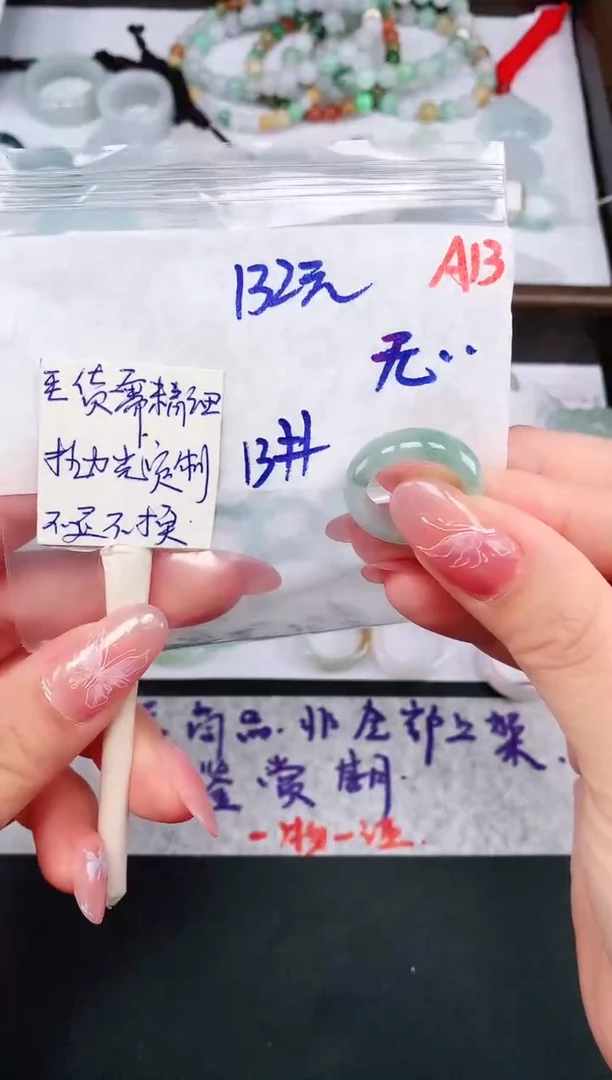 132元
A13
无..
13#
毛货需精细
抛力光定制
不退不换
商品.非全部上架.
鉴赏期.
一物一证.